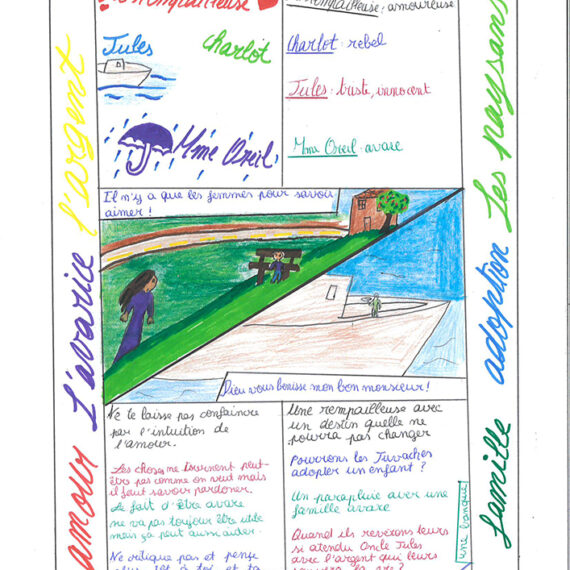 Rempailleuse
Jules
Charlot
Mme Oreil
Rempailleuse : amoureuse
Charlot : rebel
Jules : triste, innocent
Mme Oreil : avare
amour L'avarice l'argent
Il n'y a que les femmes pour savoir
aimer !
Dieu vous benisse mon bon monsieur!
famille adoption Les paysans
Ne te laisse pas confaincre
par l'intuition de
l'amour.
Les choses ne tournent peut-
être pas comme on veut mais
il faut savoir pardonner.
Le fait d'être avare
ne va pas toujour être utile
mais ça peut aussi aider.
Ne critique pas et pense
plus tôt à toi et ta
Une rempailleuse avec
un destin quelle ne
pourra pas changer
Pourrons les Tuvaches
adopter un enfant ?
Un parapluie avec une
famille avare
Quand ils revérons leurs
si atendu Oncle Jules
avec l'argent qui leurs
une banque